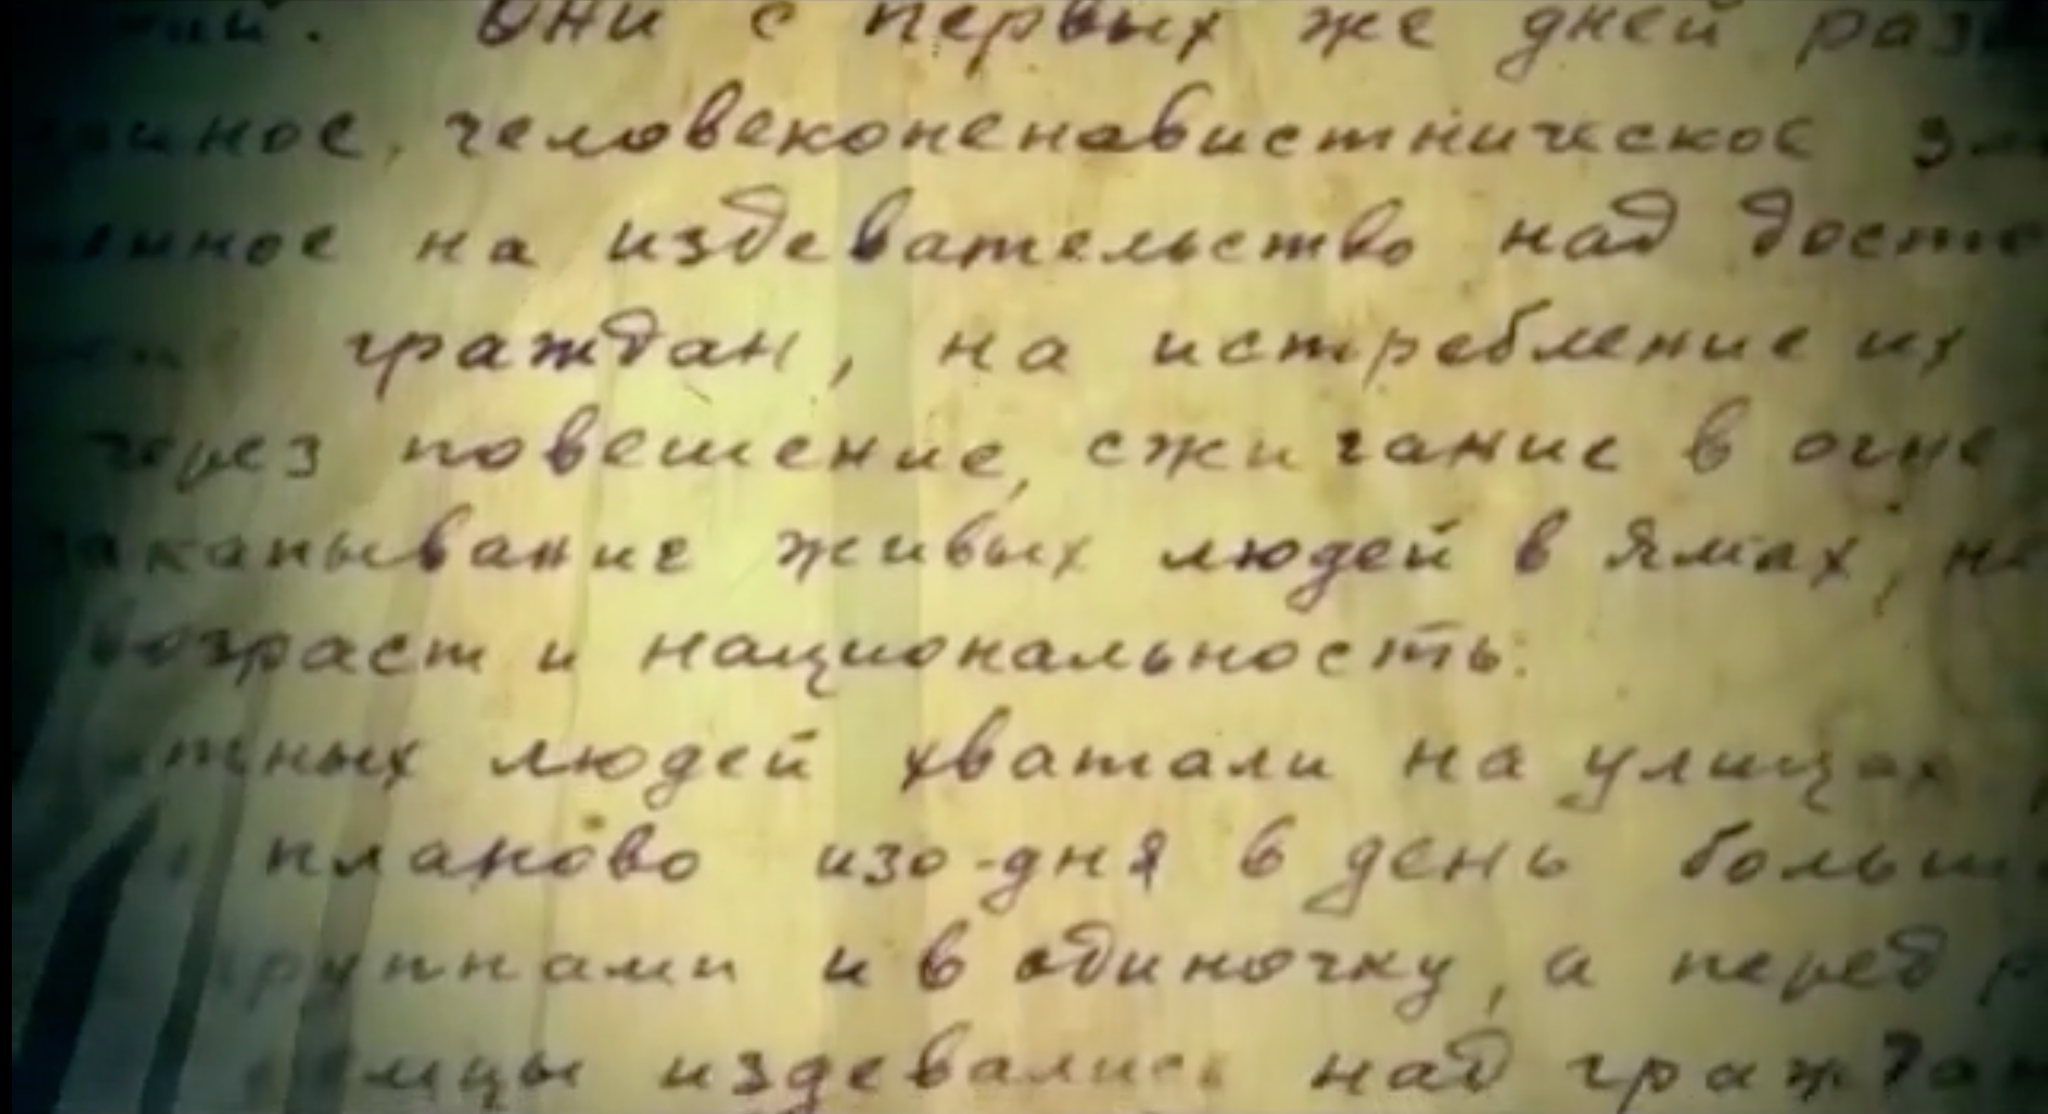 Они с первых же дней
человеконенавистническое
на издевательство над
граждан, на истребление их
через повешение, сжигание в огне
закапывание живых людей в ямах,
возраст и национальность.
людей хватали на улицах
планово изо-дня в день
группами и в одиночку, а перед
издевались над